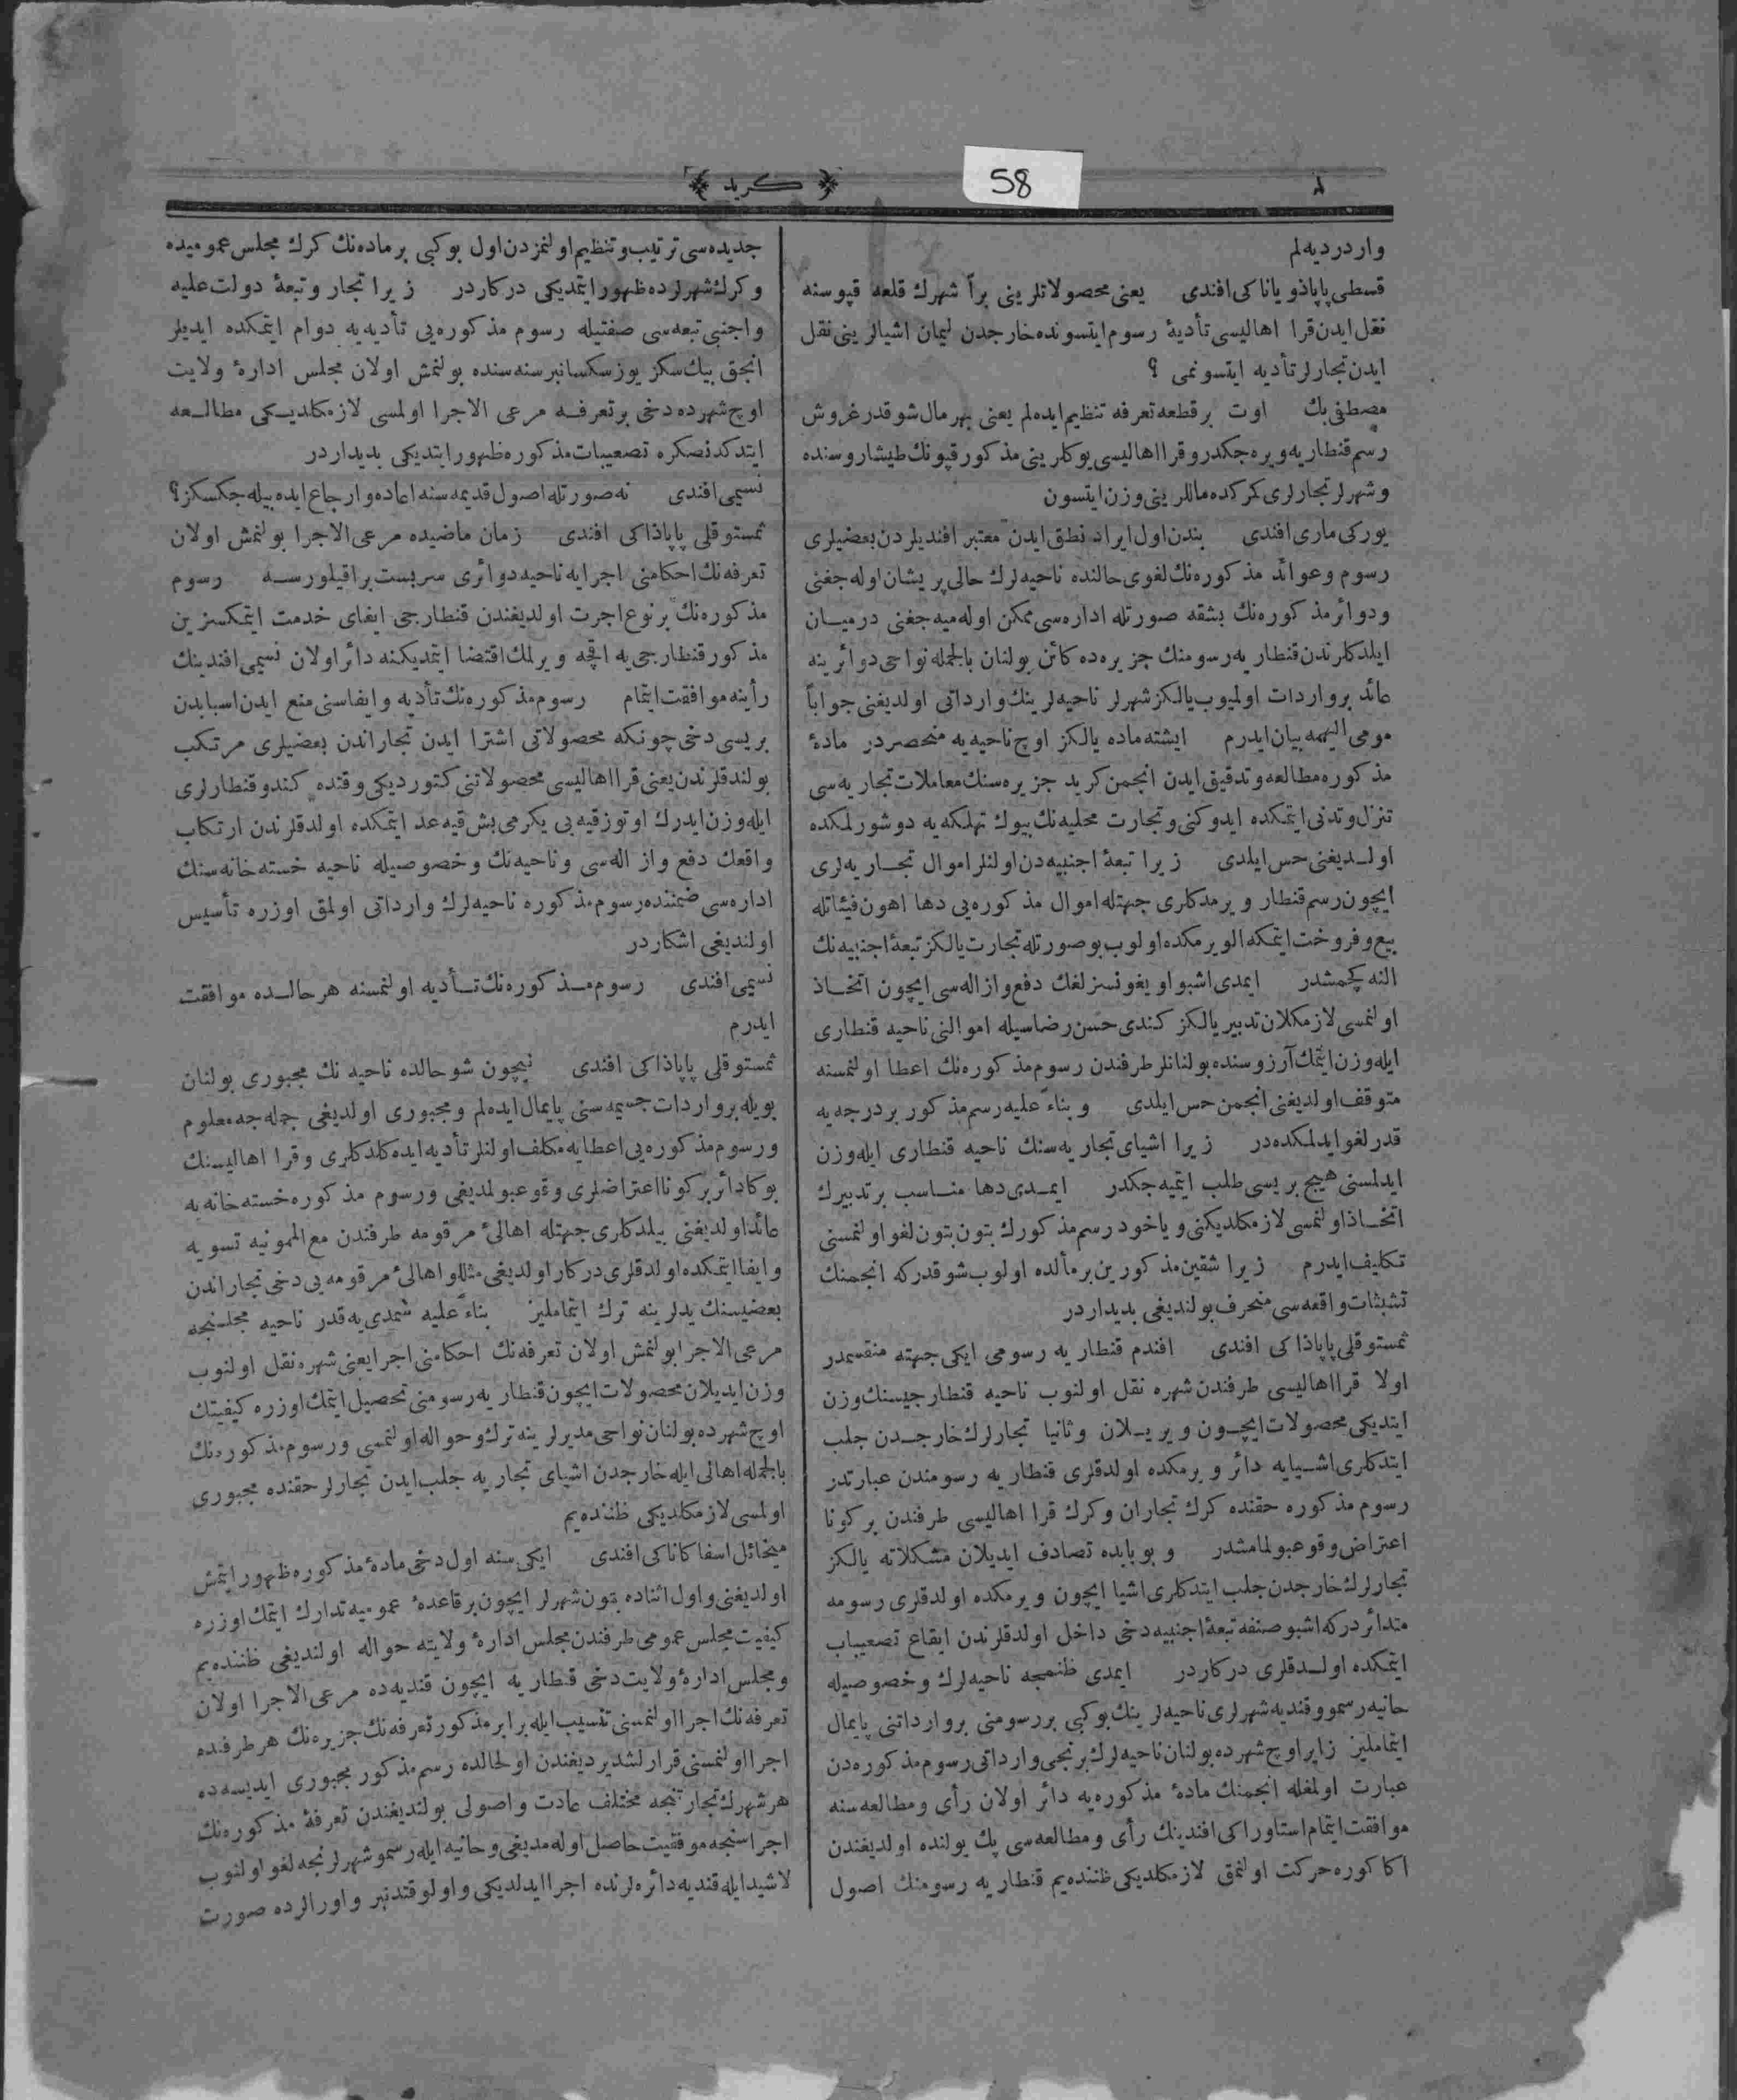 ﴿ كريد ﴾
58
واردر ديه‌لم
قسطى پاپادو ياناكى افندى يعنى محصولاتلرينى براً شهرك قلعه قپوسنه
نقل ايدن قرا اهاليسى تأديهٔ رسوم ايتسونده خارجدن ليمان اشيالرينى نقل
ايدن تجارلر تأديه ايتسونمى ؟
مصطفى بك اوت بر قطعه تعرفه تنظيم ايده‌لم يعنى بهر مال شو قدر غروش
رسم قنطاريه ويره‌جكدر و قرا اهاليسى يوكلرينى مذكور قپونك طيشاروسنده
وشهرلر تجارلرى كمركده ماللرينى وزن ايتسون
يوركى مارى افندى بندن اول ايراد نطق ايدن معتبر افنديلردن بعضيلرى
رسوم وعوائد مذكوره‌نك لغوى حالنده ناحيه‌لرك حالى پريشان اوله‌جغنى
ودوائر مذكوره‌نك بشقه صورتله اداره‌سى ممكن اوله‌ميه‌جغنى درميان
ايلدكلرندن قنطاريه رسومنك جزيره‌ده كائن بولنان بالجمله نواحى دوائرينه
عائد بر واردات اولميوب يالكز شهرلر ناحيه‌لرينك وارداتى اولديغنى جواباً
مومى اليهمه بيان ايدرم ايشته ماده يالكز اوچ ناحيه‌يه منحصردر مادهٔ
مذكوره مطالعه وتدقيق ايدن انجمن كريد جزيره‌سنك معاملات تجاريه‌سى
تنزل وتدنى ايتمكده ايدوكنى وتجارت محليه‌نك بيوك تهلكه‌يه دوشورلمكده
اولديغنى حس ايلدى زيرا تبعهٔ اجنبيه‌دن اولنلر اموال تجاريه‌لرى
ايچون رسم قنطار ويرمدكلرى جهتله اموال مذكوره‌يى دها اهون فيئاتله
بيع و فروخت ايتمكه الويرمكده اولوب بو صورتله تجارت يالكز تبعهٔ اجنبيه‌نك
النه كچمشدر ايمدى اشبو اويغونسزلغك دفع وازاله‌سى ايچون اتخاذ
اولنمسى لازمكلان تدبير يالكز كندى حسن رضاسيله اموالنى ناحيه قنطارى
ايله وزن ايتمك آرزوسنده بولنانلر طرفندن رسوم مذكوره‌نك اعطا اولنمسنه
متوقف اولديغنى انجمن حس ايلدى و بناءً عليه رسم مذكور بر درجه‌يه
قدر لغو ايدلمكده‌در زيرا اشياى تجاريه‌سنك ناحيه قنطارى ايله وزن
ايدلمسنى هيچ بريسى طلب ايتميه‌جكدر ايمدى دها مناسب بر تدبيرك
اتخاذ اولنمسى لازمكلديكنى و ياخود رسم مذكورك بتون بتون لغو اولنمسنى
تكليف ايدرم زيرا شقين مذكورين بر مألده اولوب شو قدركه انجمنك
تشبثات واقعه‌سى منحرف بولنديغى بديداردر
ثمستوقلى پاپاذاكى افندى افندم قنطاريه رسومى ايكى جهته منقسمدر
اولا قرا اهاليسى طرفندن شهره نقل اولنوب ناحيه قنطارجيسنك وزن
ايتديكى محصولات ايچون ويريلان وثانيا تجارلرك خارجدن جلب
ايتدكلرى اشيايه دائر ويرمكده اولدقلرى قنطاريه رسومندن عبارتدر
رسوم مذكوره حقنده كرك تجاران وكرك قرا اهاليسى طرفندن بر كونا
اعتراض وقوعبولمامشدر و بو بابده تصادف ايديلان مشكلاته يالكز
تجارلرك خارجدن جلب ايتدكلرى اشيا ايچون ويرمكده اولدقلرى رسومه
متدائردركه اشبو صنفه تبعهٔ اجنبيه دخى داخل اولدقلرندن ايقاع تصعيبات
ايتمكده اولدقلرى دركاردر ايمدى ظنمجه ناحيه‌لرك وخصوصيله
حانيه رسمو و قنديه شهرلرى ناحيه‌لرينك بوكبى بر رسومنى بر وارداتنى پايمال
ايتماملييز زيرا اوچ شهرده بولنان ناحيه‌لرك برنجى وارداتى رسوم مذكوره‌دن
عبارت اولمغله انجمنك مادهٔ مذكوره‌يه دائر اولان رأى ومطالعه‌سنه
موافقت ايتمام استاوراكى افندينك رأى ومطالعه‌سى پك يولنده اولديغندن
اكا كوره حركت اولنمق لازمكلديكى ظننده‌يم قنطاريه رسومنك اصول
جديده‌سى ترتيب وتنظيم اولنمزدن اول بوكبى بر ماده‌نك كرك مجلس عموميده
وكرك شهرلرده ظهور ايتمديكى دركاردر زيرا تجار وتبعهٔ دولت عليه
واجنبى تبعه‌سى صفتيله رسوم مذكوره‌يى تأديه‌يه دوام ايتمكده ايديلر
انجق بيك سكز يوز سكسانبر سنه‌سنده بولنمش اولان مجلس ادارهٔ ولايت
اوچ شهرده دخى بر تعرفه مرعى الاجرا اولمسى لازمكلديكى مطالعه
ايتدكدنصكره تصعيبات مذكوره ظهور ايتديكى بديداردر
نسيمى افندى نه صورتله اصول قديمه‌سنه اعاده وارجاع ايده‌بيله‌جكسكز؟
ثمستوقلى پاپاذاكى افندى زمان ماضيده مرعى الاجرا بولنمش اولان
تعرفه‌نك احكامنى اجرايه ناحيه دوائرى سربست براقيلورسه رسوم
مذكوره‌نك بر نوع اجرت اولديغندن قنطارجى ايفاى خدمت ايتمكسزين
مذكور قنطارجى‌يه اقچه ويرلمك اقتضا ايتمديكنه دائر اولان نسيمى افندينك
رأينه موافقت ايتمام رسوم مذكوره‌نك تأديه وايفاسنى منع ايدن اسبابدن
بريسى دخى چونكه محصولاتى اشترا ايدن تجاراندن بعضيلرى مرتكب
بولندقلرندن يعنى قرا اهاليسى محصولاتنى كتورديكى وقتده كندو قنطارلرى
ايله وزن ايدرك اوتوز قيه‌يى يكرمى بش قيه عد ايتمكده اولدقلرندن ارتكاب
واقعك دفع وازاله‌سى وناحيه‌نك وخصوصيله ناحيه خسته‌خانه‌سنك
اداره‌سى ضمننده رسوم مذكوره ناحيه‌لرك وارداتى اولمق اوزره تأسيس
اولنديغى اشكاردر
نسيمى افندى رسوم مذكوره‌نك تأديه اولنمسنه هر حالده موافقت
ايدرم
ثمستوقلى پاپاذاكى افندى نيچون شو حالده ناحيه‌نك مجبورى بولنان
بويله بر واردات جسيمه‌سنى پايمال ايده‌لم ومجبورى اولديغى جمله‌جه معلوم
ورسوم مذكوره‌يى اعطايه مكلف اولنلر تأديه ايده‌كلدكلرى وقرا اهاليسنك
بوكا دائر بر كونا اعتراضلرى وقوعبولمديغى ورسوم مذكوره خسته‌خانه‌يه
عائد اولديغنى بيلدكلرى جهتله اهالىٔ مرقومه طرفندن مع الممونيه تسويه
وايفا ايتمكده اولدقلرى دركار اولديغى مثللو اهالىٔ مرقومه‌يى دخى تجاراندن
بعضيسنك يدلرينه ترك ايتماملييز بناءً عليه شمدى‌يه قدر ناحيه مجلسنجه
مرعى الاجرا بولنمش اولان تعرفه‌نك احكامنى اجرا يعنى شهره نقل اولنوب
وزن ايديلان محصولات ايچون قنطاريه رسومنى تحصيل ايتمك اوزره كيفيتك
اوچ شهرده بولنان نواحى مديرلرينه ترك وحواله اولنمسى ورسوم مذكوره‌نك
بالجمله اهالى ايله خارجدن اشياى تجاريه جلب ايدن تجارلر حقنده مجبورى
اولمسى لازمكلديكى ظننده‌يم
ميخائل اسفاكاناكى افندى ايكى سنه اول دخى مادهٔ مذكوره ظهور ايتمش
اولديغنى واول اثناده بتون شهرلر ايچون بر قاعدهٔ عموميه تدارك ايتمك اوزره
كيفيت مجلس عمومى طرفندن مجلس ادارهٔ ولايته حواله اولنديغى ظننده‌يم
ومجلس ادارهٔ ولايت دخى قنطاريه ايچون قنديه‌ده مرعى الاجرا اولان
تعرفه‌نك اجرا اولنمسنى تنسيب ايله برابر مذكور تعرفه‌نك جزيره‌نك هر طرفنده
اجرا اولنمسنى قرارلشديرديغندن اولحالده رسم مذكور مجبورى ايديسه‌ده
هر شهرك تجارنجه مختلف عادت واصولى بولنديغندن تعرفهٔ مذكوره‌نك
اجراسنجه موفقيت حاصل اوله‌مديغى وحانيه ايله رسمو شهرلرنجه لغو اولنوب
لاشيد ايله قنديه دائره‌لرنده اجرا ايدلديكى واولوقتدنبر واورالرده صورت